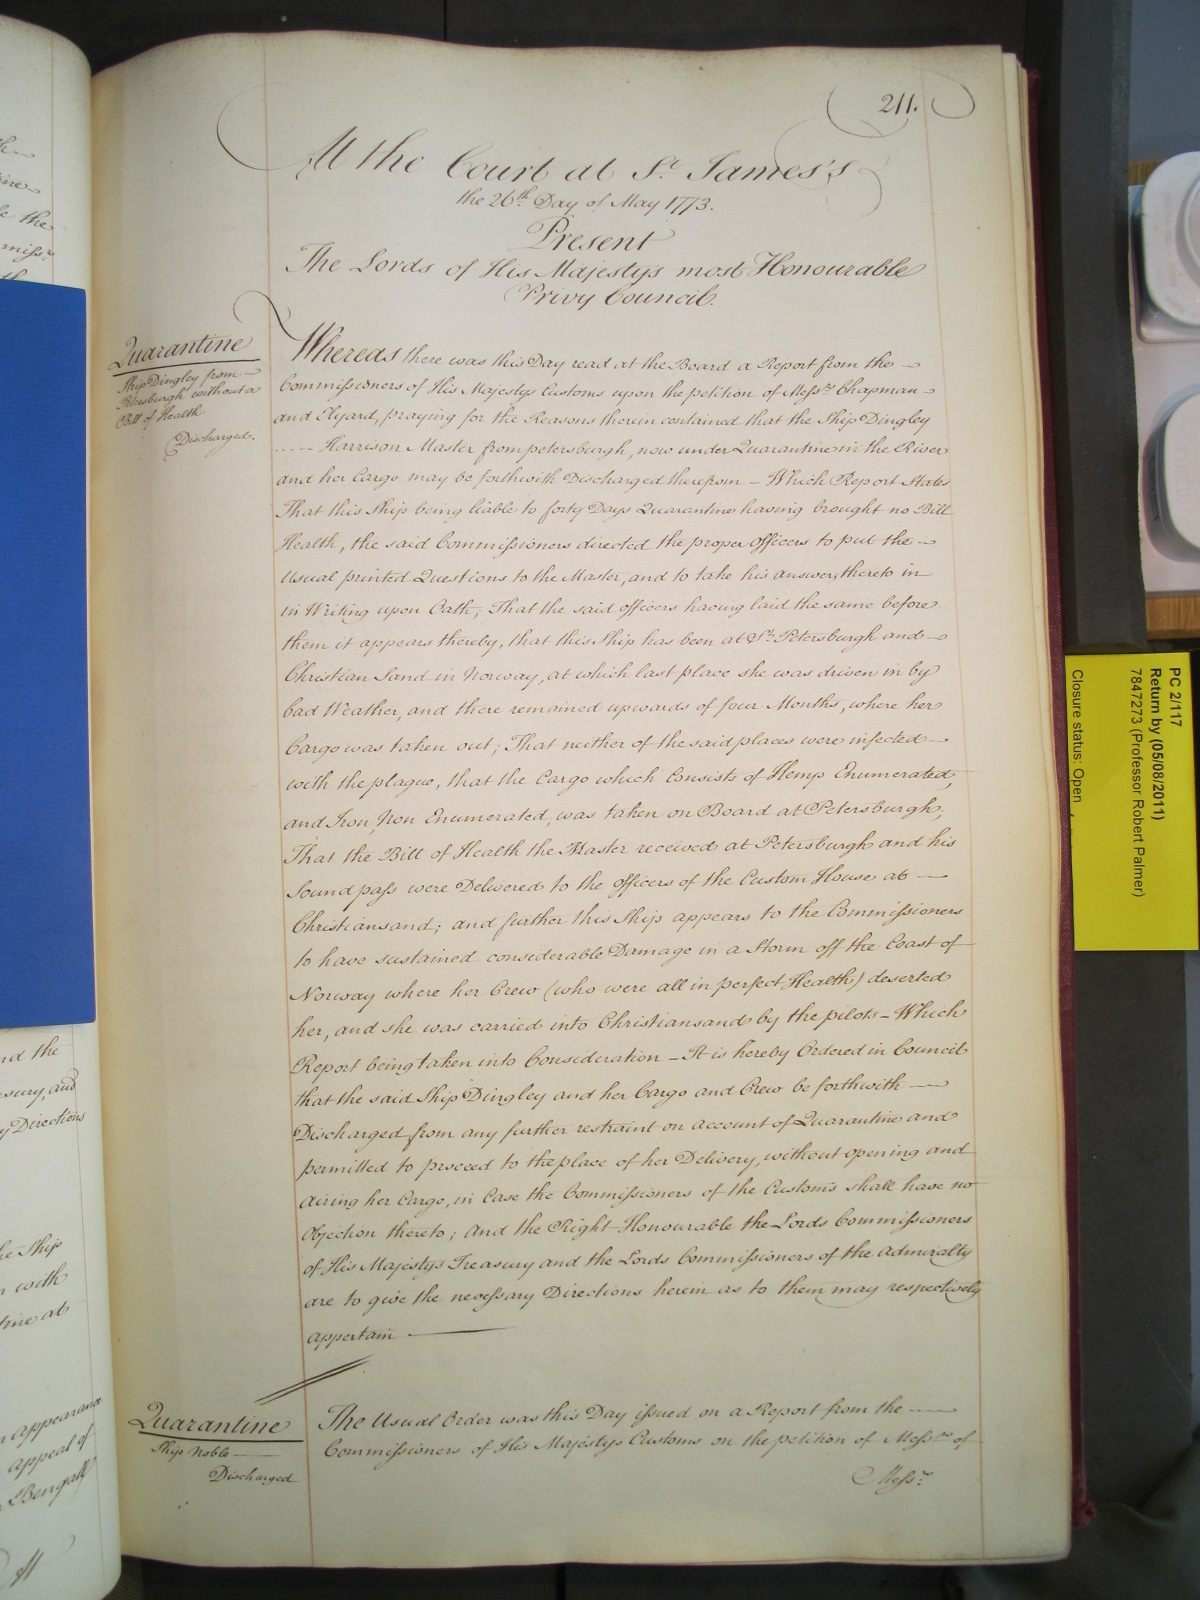 211.
At the Court at St. James's
the 26th Day of May 1773.
Present
The Lords of His Majestys most Honourable
Privy Council.
Quarantine
Ship Dingley from
Petersburgh without a
Bill of Health.
Discharged.
Whereas there was this Day read at the Board a Report from the
Commissioners of His Majestys Customs upon the petition of Messrs. Chapman
and praying for the Reasons therein contained that the Ship Dingley
----- Harrison Master from petersburgh, now under Quarantine in the River
and her Cargo may be forthwith Discharged therefrom - Which Report States
That this Ship being liable to forty Days Quarantine having brought no Bill
Health, the said Commissioners directed the proper Officers to put the
Usual printed Questions to the Master, and to take his answers thereto in
in Writing upon Oath; That the said officers having laid the same before
them it appears thereby, that this Ship has been at St. Petersburgh and
Christian Sand in Norway, at which last place she was driven in by
bad Weather, and there remained upwards of four Months, where her
Cargo was taken out; That neither of the said places were infected
with the plague, that the Cargo which Consists of Hemp Enumerated,
and Iron, Non Enumerated, was taken on Board at Petersburgh;
That the Bill of Health the Master received at Petersburgh and his
Sound pass were Delivered to the officers of the Custom House at
Christiansand; and further this Ship appears to the Commissioners
to have sustained considerable Damage in a Storm off the Coast of
Norway where her Crew (who were all in perfect Health) deserted
her, and she was carried into Christiansand by the pilots - Which
Report being taken into Consideration - It is hereby Ordered in Council
that the said Ship Dingley and her Cargo and Crew be forthwith
Discharged from any further restraint on account of Quarantine and
permitted to proceed to the place of her Delivery, without opening and
airing her Cargo, in Case the Commissioners of the Customs shall have no
Objection thereto; And the Right Honourable the Lords Commissioners
of His Majestys Treasury and the Lords Commissioners of the Admiralty
are to give the necessary Directions herein as to them may respectively
appertain
Quarantine
Ship Noble
Discharged
The Usual Order was this Day issued on a Report from the
Commissioners of His Majestys Customs on the petition of Messrs of
Messrs.
PC 2/117
Return by (05/08/2011)
7847273 (Professor Robert Palmer)
Closure status: Open
the
nd the
Directions
he Ship
with
tine at
appearance
appeal of
Bengall